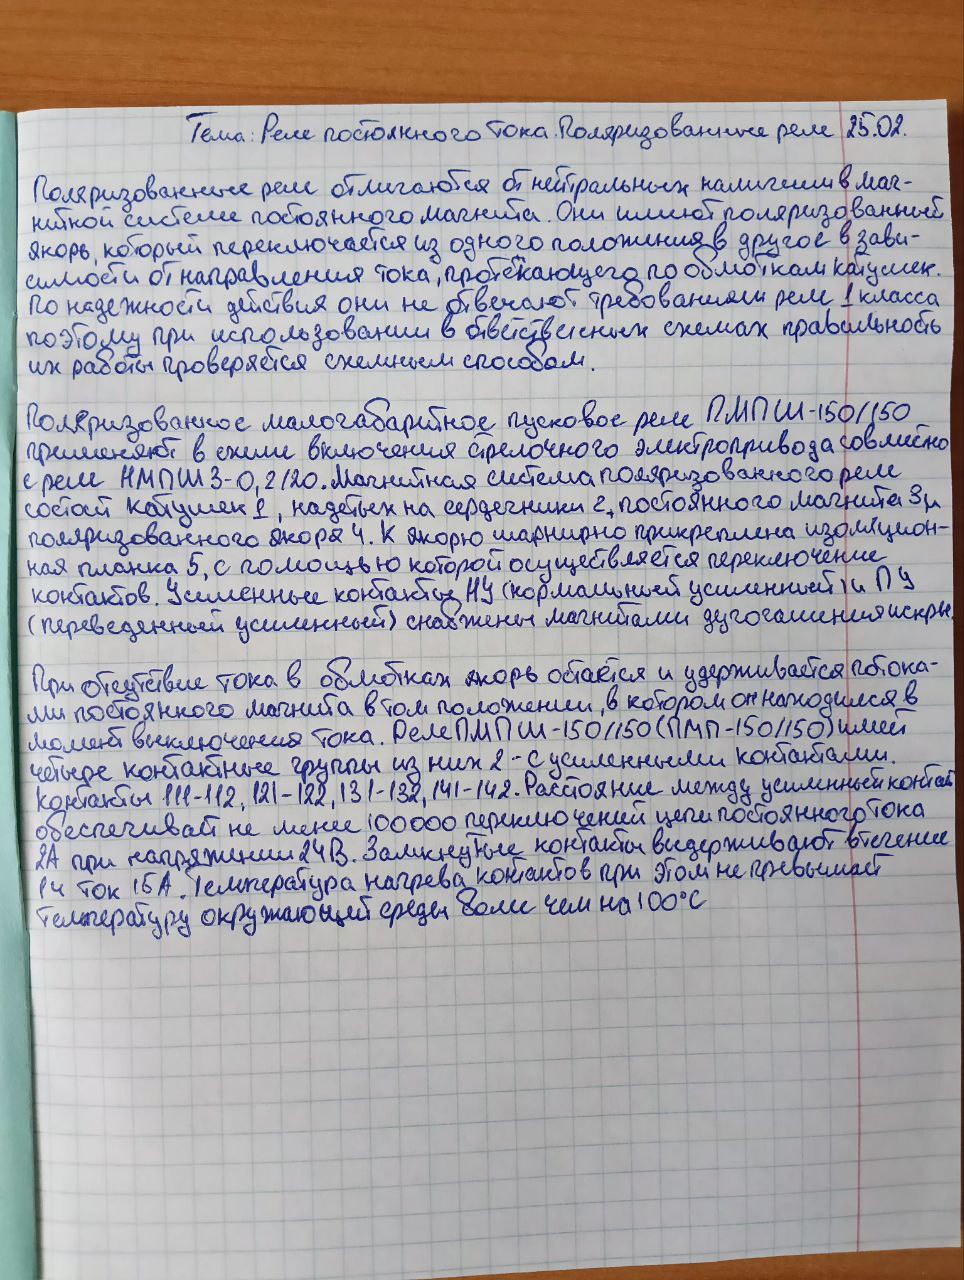 Тема: Реле постоянного тока. Поляризованные реле 25.02.
Поляризованные реле отличаются от нейтральных наличием в маг-
нитной системе постоянного магнита. Они имеют поляризованный
якорь, который переключается из одного положения в другое в зави-
симости от направления тока, протекающего по обмоткам катушек.
По надежности действия они не отвечают требованиям реле 1 класса
поэтому при использовании в ответственных схемах правильность
их работы проверяется схемным способом.
Поляризованное малогабаритное пусковое реле ПМПШ-150/150
применяют в схеме включения стрелочного электропривода совместно
с реле НМПШ3-0,2/20. Магнитная система поляризованного реле
состоит катушек 1, надетых на сердечники 2, постоянного магнита 3 и
поляризованного якоря 4. К якорю шарнирно прикреплена изоляцион-
ная планка 5, с помощью которой осуществляется переключение
контактов. Усиленные контакты НУ (нормальный усиленный) и ПУ
(переведенный усиленный) снабжены магнитами дугогашения искры.
При отсутствие тока в обмотках якорь остаётся и удерживается потока-
ми постоянного магнита в том положении, в котором он находился в
момент выключения тока. Реле ПМПШ-150/150 (ПМП-150/150) имеет
четыре контактные группы из них 2 - с усиленными контактами.
Контакты 111-112, 121-122, 131-132, 141-142. Расстояние между усиленный контакт
обеспечивает не менее 100000 переключений цепи постоянного тока
2А при напряжении 24В. Замкнутые контакты выдерживают в течение
1ч ток 15А. Температура нагрева контактов при этом не превышает
температуру окружающей среды более чем на 100°С